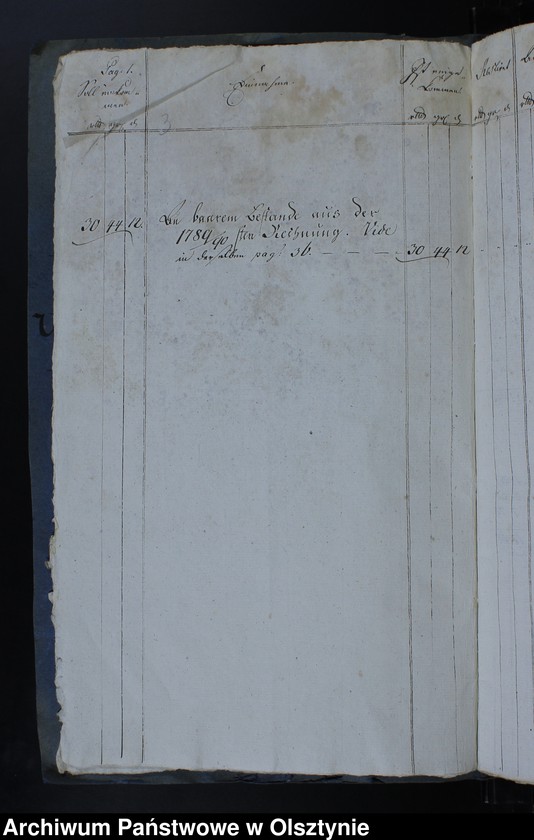 Pag: 1.
Soll einkom-
men
rtl gr d
Einnahme
Ist einge-
kommen
rtl gr d
Restirt
rtl gr d
30 44 12. An baarem Bestande aus der
1789/90sten Rechnung. Vide
in derselben pag: 36. — — — 30 44 12
Archiwum Państwowe w Olsztynie